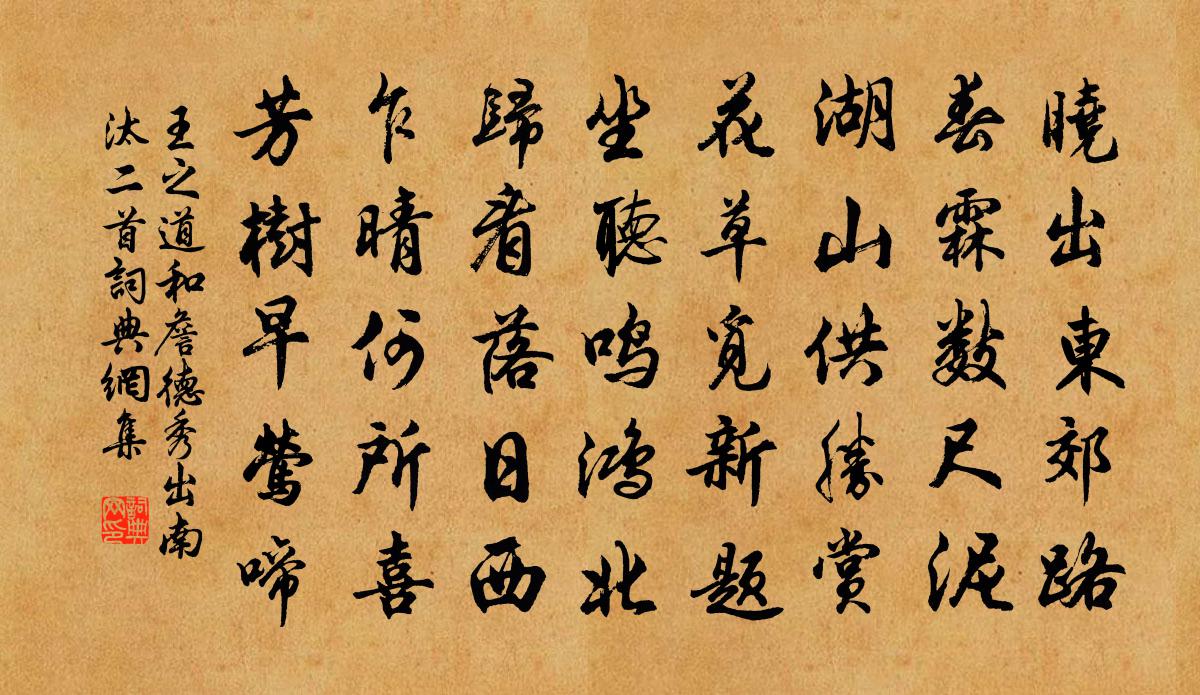 曉出東郊路
春霖數尺泥
湖山供勝賞
花草覓新題
坐聽鳴鴻北
歸看落日西
乍晴何所喜
芳樹早鶯啼
王之道和詹德秀出南
汰二首詞典網集
詞典
网印